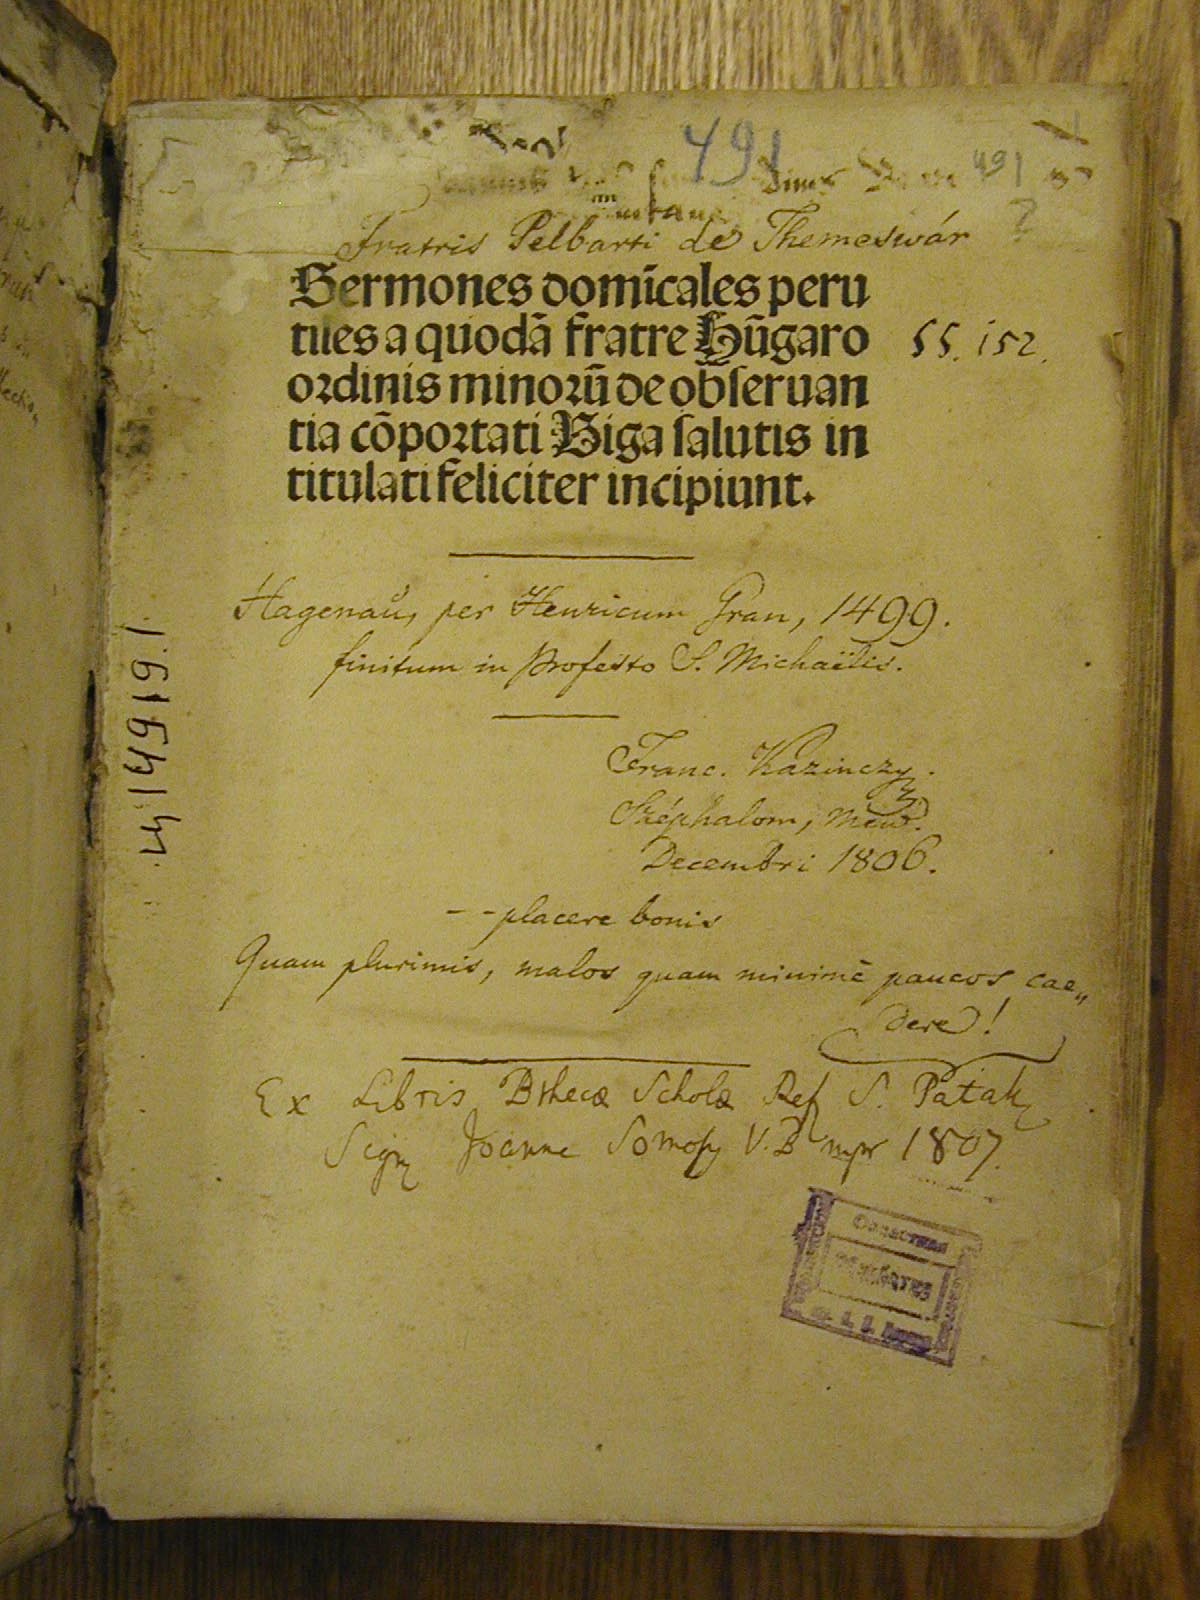 491
491
?
Fratris Pelbarti de Themeswár
Sermones domĩcales peru
tiles a quodã fratre Hũgaro
55. 152.
ordinis minorũ de obseruan
tia cõportati Biga salutis in
titulati feliciter incipiunt.
Hagenaŭ, per Henricum Gran, 1499.
finitum in profesto S. Michaëlis.
Franc. Kazinczy.
Széphalom, Men.
Decembri 1806.
- - placere bonis
Quam plurimis, malos quam minimè paucos cae„
dere!
Ex Libris Bthecæ Scholæ Ref S. Patak
Joanne Somosy V. B mpr 1807.
149191